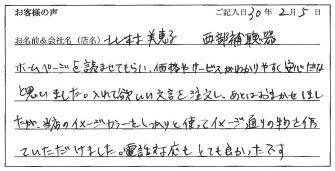 お客様の声 ご記入日 30年 2月 5日
お名前&会社名(店名) 北村 美恵子 西部補聴器
ホームページを読ませてもらい、価格やサービスがわかりやすく安心だな
と思いました。入れて欲しい文言を注文し、あとはおまかせしまし
たが、当店のイメージカラーをしっかりと使ってイメージ通りの物を作っ
ていただけました。電話対応もとても良かったです